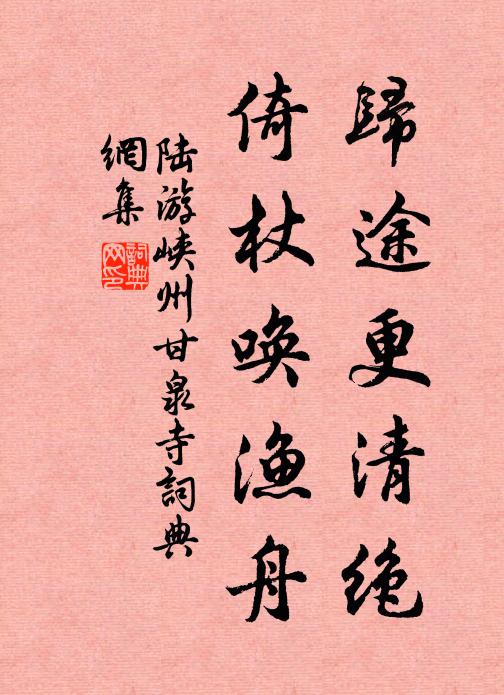 歸途更清绝
倚杖唤渔舟
陆游峡州甘泉寺詞典
網集
詞典
网印